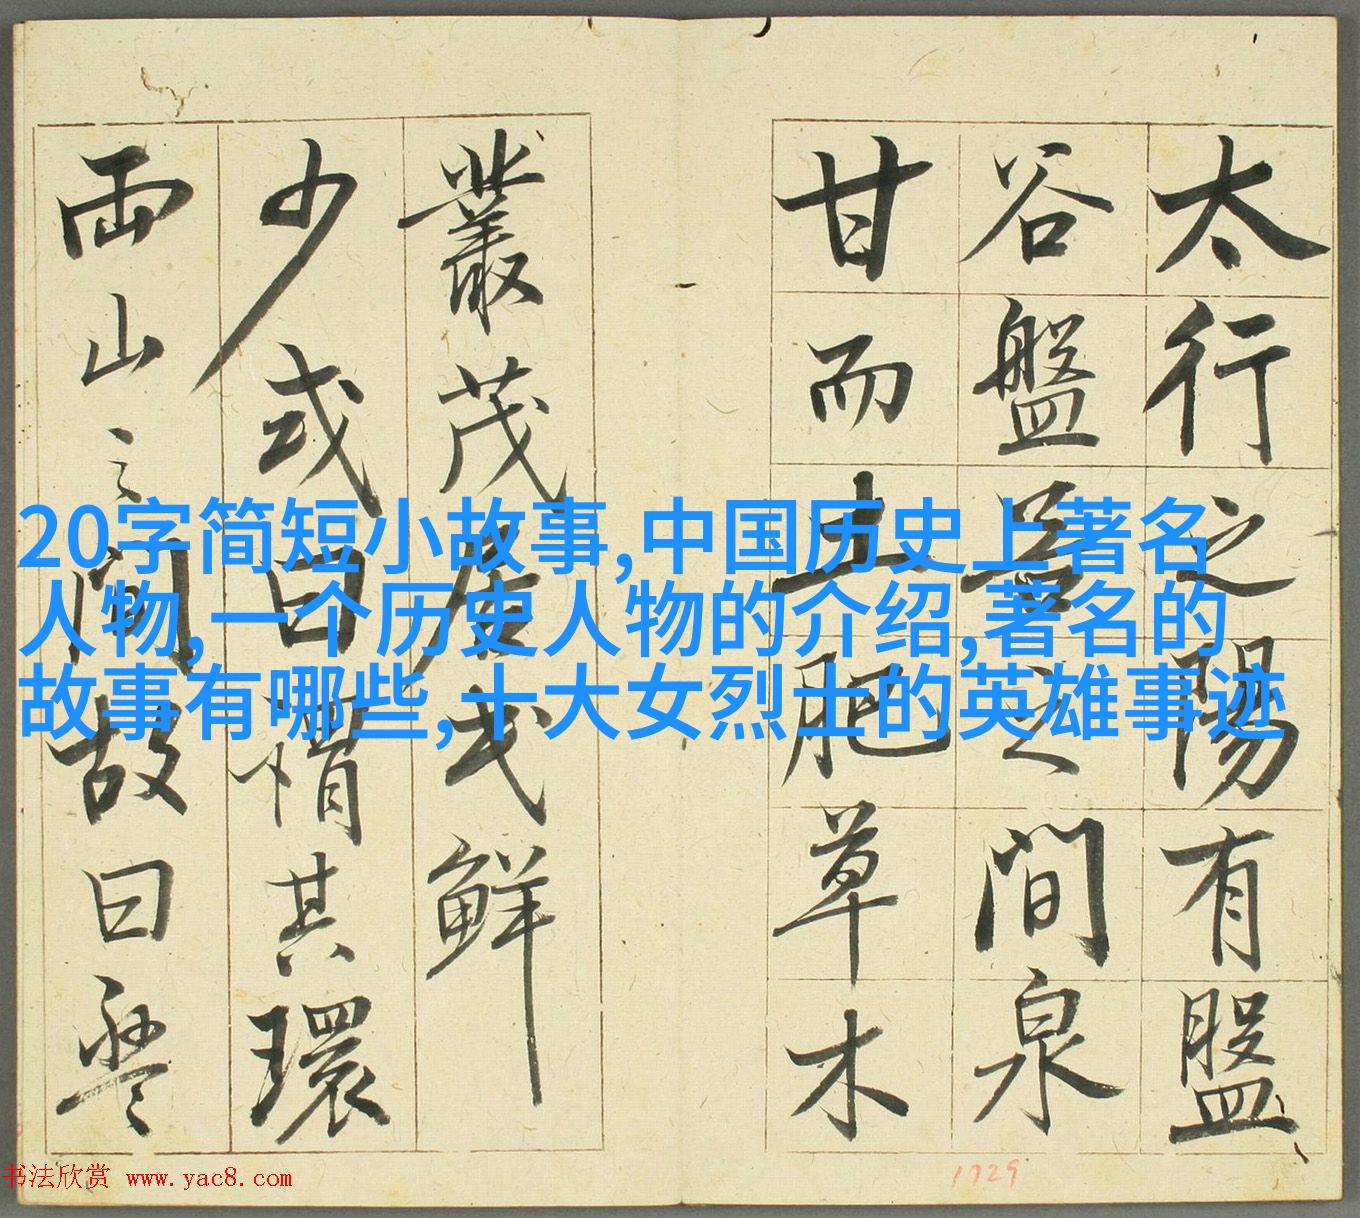 太行之陽有盤
谷盤谷之間泉
甘而土肥草木
叢茂居民鮮
少或曰謂其環
兩山之間故曰盤
20字简短小故事,中国历史上著名
人物,一个历史人物的介绍,著名的
故事有哪些,十大女烈士的英雄事迹
书法欣赏 www.yac8.com
1729